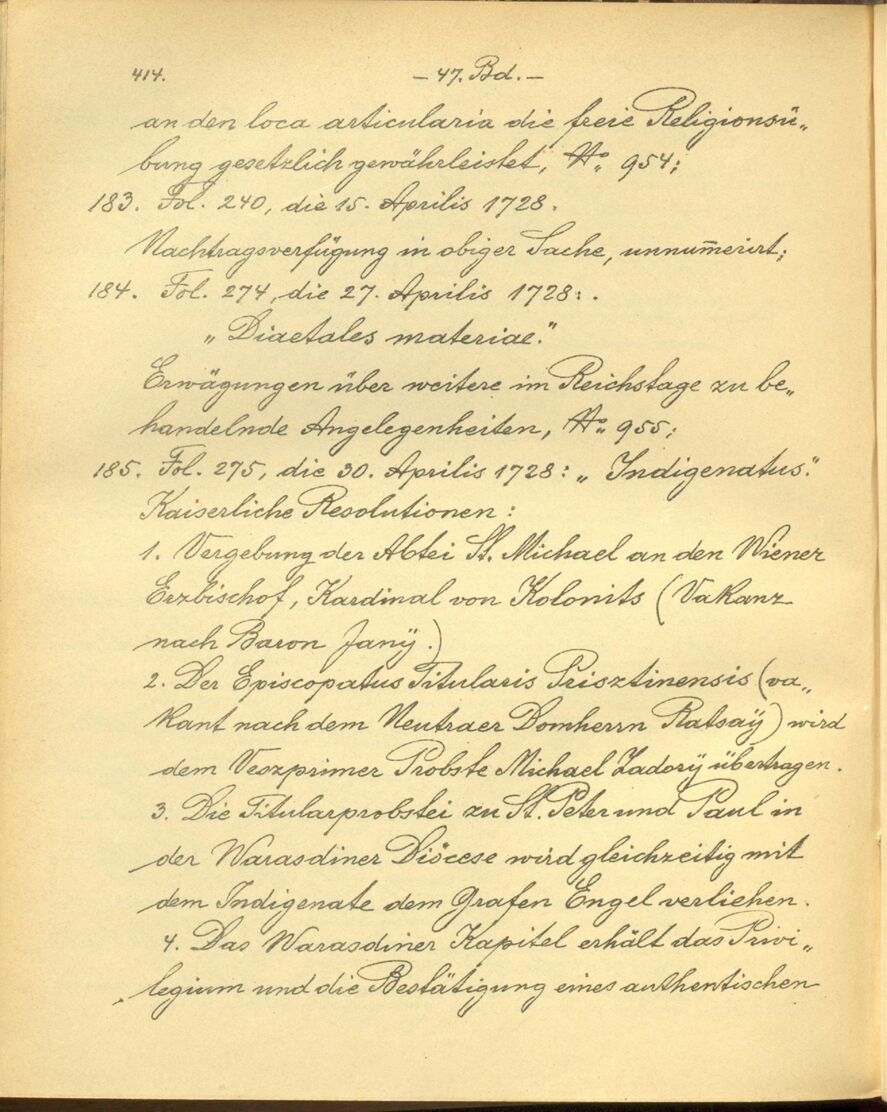 414. — 47. Bd. —
an den loca articularia die freie Religionsü„
bung gesetzlich gewährleistet, No„ 954;
183. Fol. 240, die 15. Aprilis 1728.
Nachtragsverfügung in obiger Sache, unnum̅erirt;
184. Fol. 274, die 27. Aprilis 1728: .
„Diaetales materiae.“
Erwägungen über weitere im Reichstage zu be„
handelnde Angelegenheiten, No„ 955;
185. Fol. 275, die 30. Aprilis 1728: „Indigenatus.“
Kaiserliche Resolutionen:
1. Vergebung der Abtei St. Michael an den Wiener
Erzbischof, Kardinal von Kolonits (Vakanz
nach Baron Janÿ.)
2. Der Episcopatus Titularis Prisztinensis (va„
kant nach dem Neutraer Domherrn Ratsaÿ) wird
dem Veszprimer Probste Michael Zadorÿ übertragen.
3. Die Titularprobstei zu St. Peter und Paul in
der Warasdiner Diöcese wird gleichzeitig mit
dem Indigenate dem Grafen Engel verliehen.
4. Das Warasdiner Kapitel erhält das Privi„
legium und die Bestätigung eines authentischen